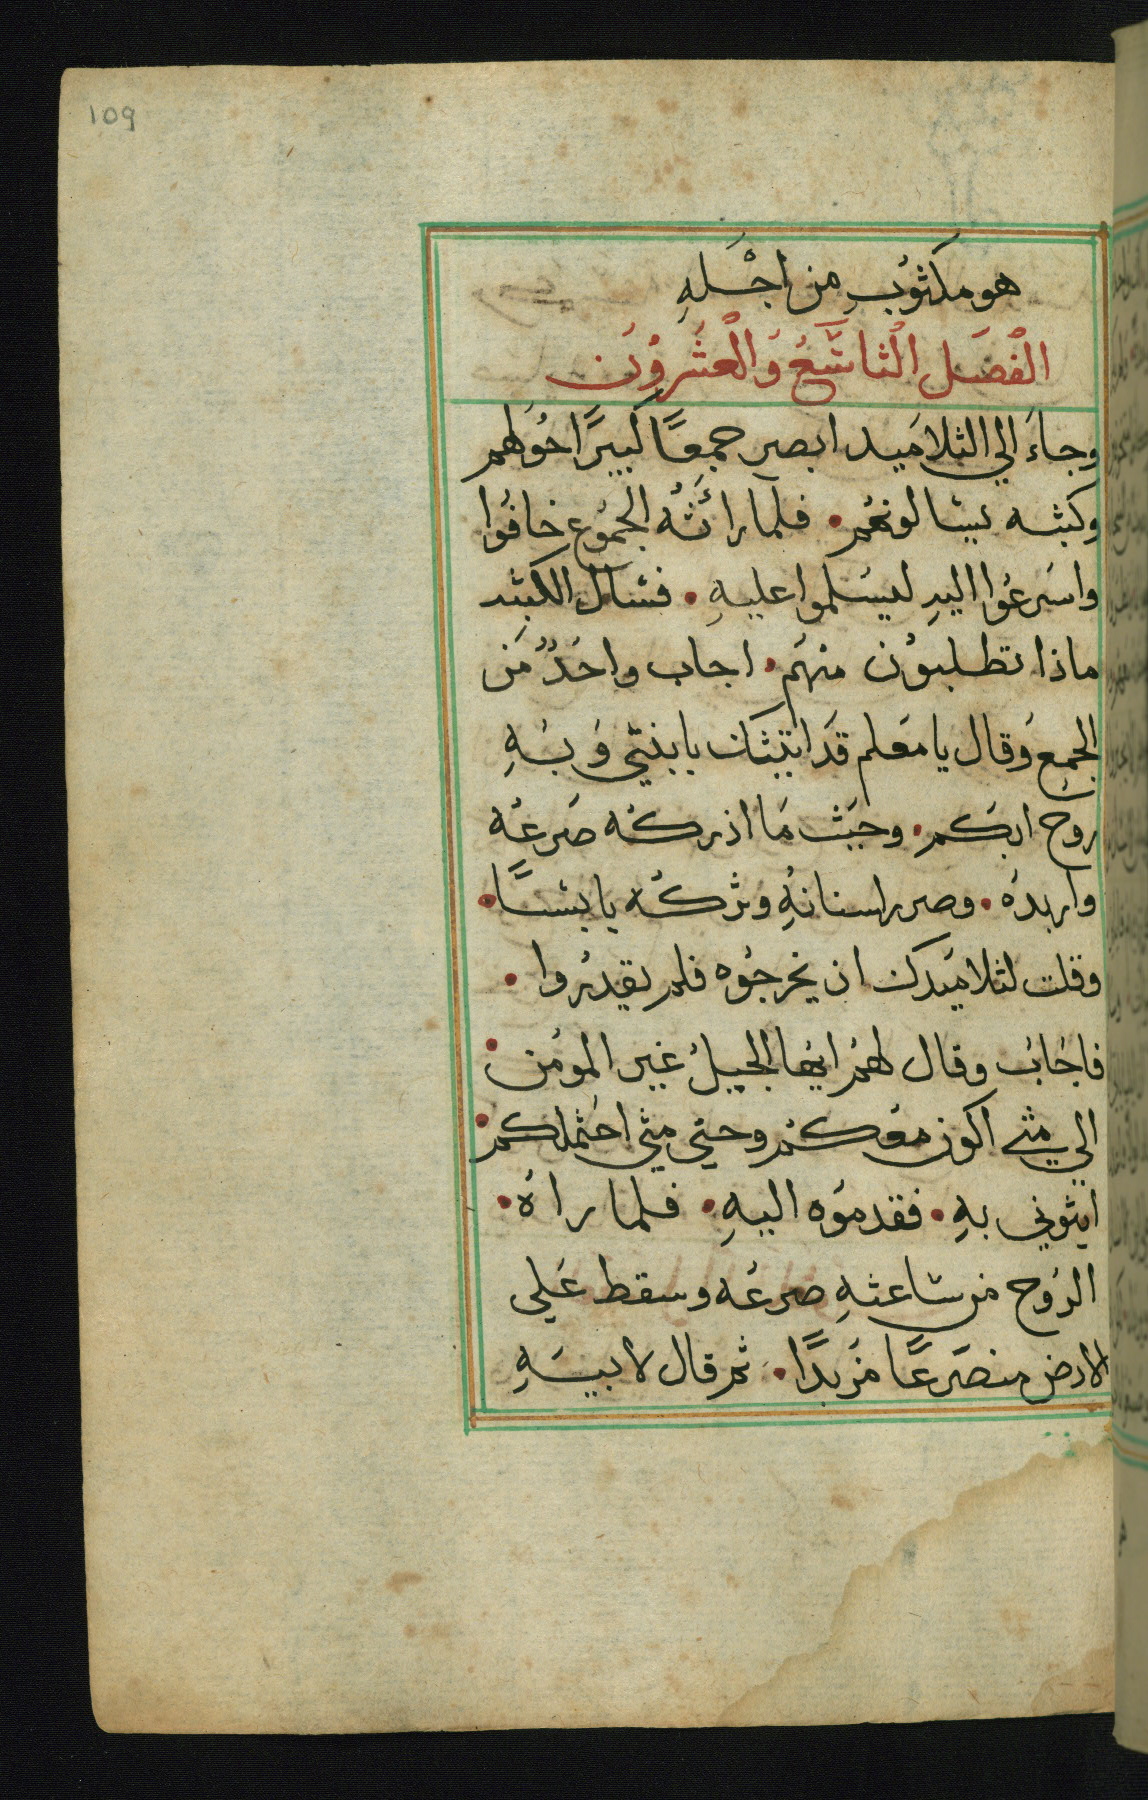 109
هو مكثوب من اجله
الفصل الثاسع والعشرون
وجاء الي الثلاميد ابصر جمعًا كبيرًا حولهم
وكثبه يسالونهم • فلما رائثه الجموع خافوا
واسرعوا اليه ليسلموا عليه • فسال الكثبه
ماذا تطلبون منهم • اجاب واحدٌ من
الجمع وقال يا معلم قد اثيثك بابني وبه
روح ابكم • وحيث ما اذركه صرعه
واربده • وصرر اسنانه وثركه يابسًا •
وقلت لثلاميدك ان يخرجوه فلم يقدروا •
فاجاب وقال لهم ايها الجيل غير المومن •
الي مثي اكون معكم وحثي مثي احثملكم •
ايثوني به • فقدموه اليه • فلما راه •
الروح من ساعثه صرعه وسقط علي
الارض منصرعًا مزبدًا • ثم قال لابيه